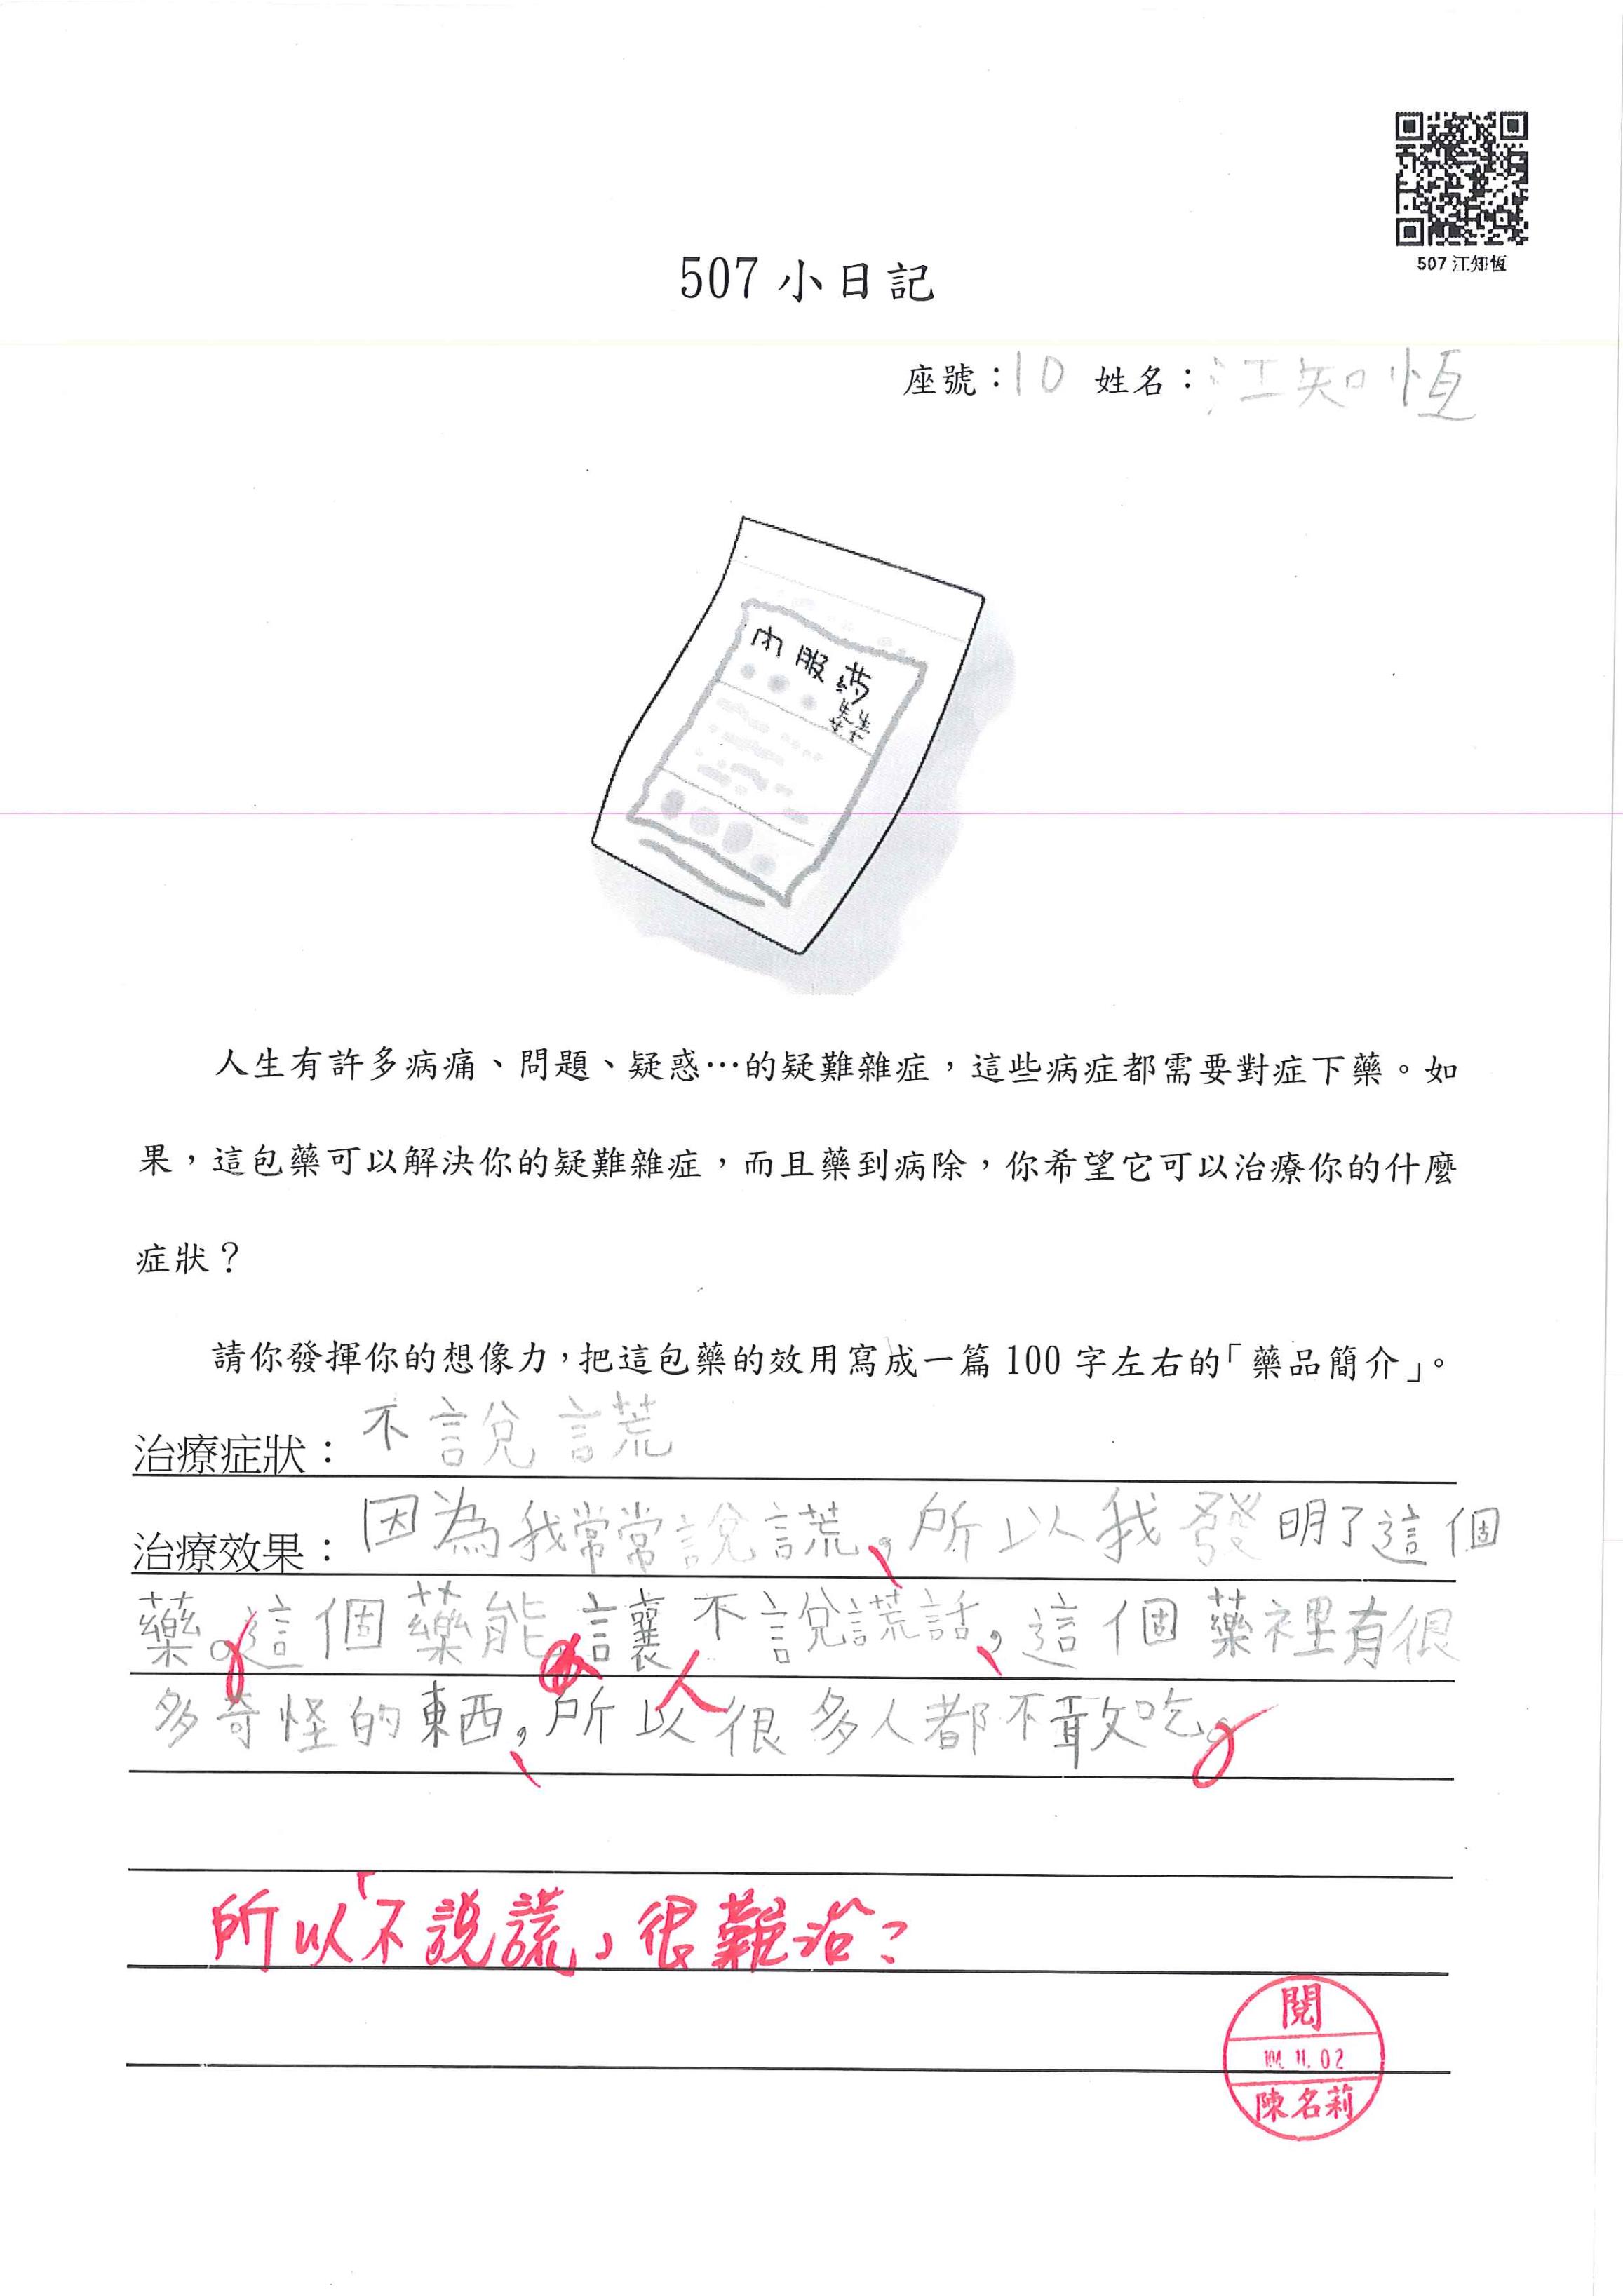 507 江知恆
507 小日記
座號：10 姓名：江知恆
內服藥
人生有許多病痛、問題、疑惑…的疑難雜症，這些病症都需要對症下藥。如
果，這包藥可以解決你的疑難雜症，而且藥到病除，你希望它可以治療你的什麼
症狀？
請你發揮你的想像力，把這包藥的效用寫成一篇 100 字左右的「藥品簡介」。
治療症狀：不說謊
治療效果：因為我常常說謊，所以我發明了這個
藥。這個藥能讓不說謊話，這個藥裡有很
人
多奇怪的東西，所以很多人都不敢吃。
所以「不說謊」很難治？
閱
104.11.02
陳名莉